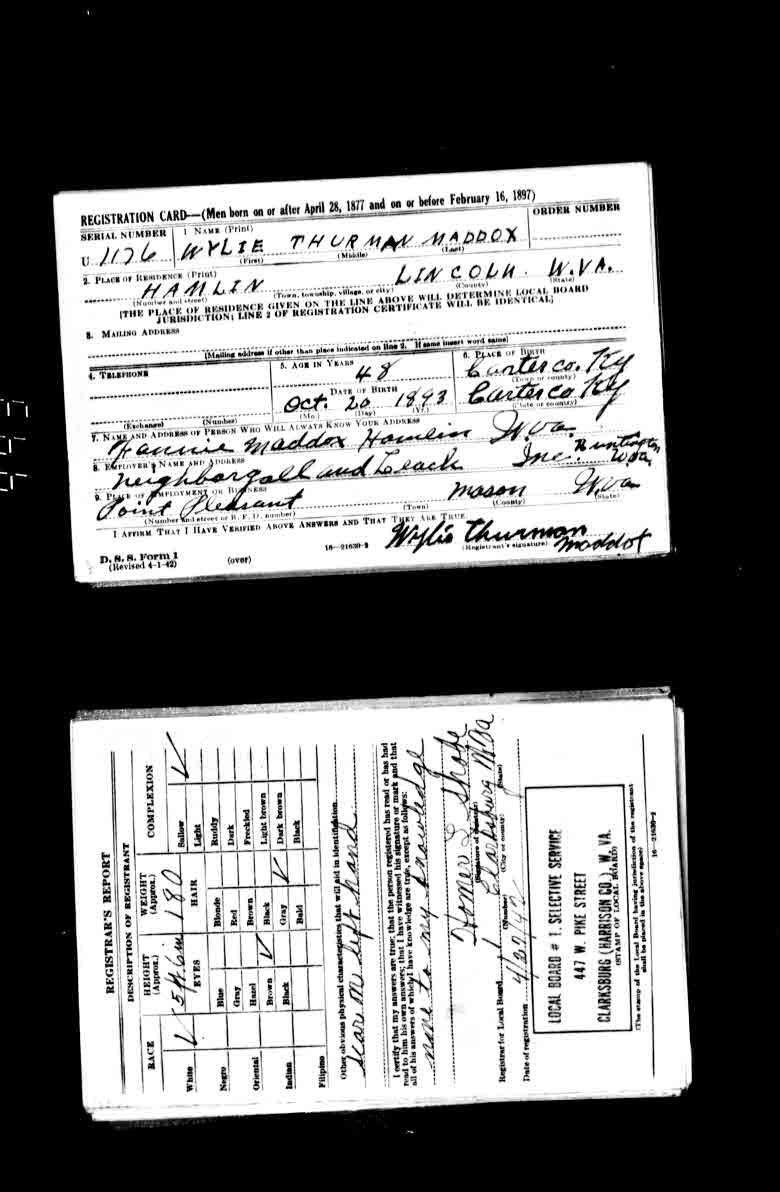 REGISTRATION CARD—(Men born on or after April 28, 1877 and on or before February 16, 1897)
SERIAL NUMBER 1 NAME (Print) ORDER NUMBER
U 1176 WYLIE THURMAN MADDOX
(First) (Middle) (Last)
2. PLACE OF RESIDENCE (Print)
HAMLIN LINCOLN W.VA.
(Number and street) (Town, township, village, or city) (County) (State)
[THE PLACE OF RESIDENCE GIVEN ON THE LINE ABOVE WILL DETERMINE LOCAL BOARD
JURISDICTION; LINE 2 OF REGISTRATION CERTIFICATE WILL BE IDENTICAL]
3. MAILING ADDRESS
[Mailing address if other than place indicated on line 2. If same insert word same]
4. TELEPHONE 5. AGE IN YEARS 6. PLACE OF BIRTH
48 Carter co. Ky
(Town or county)
DATE OF BIRTH
Oct. 20 1893 Carter co Ky
(Exchange) (Number) (Mo.) (Day) (Yr.) (State or country)
7. NAME AND ADDRESS OF PERSON WHO WILL ALWAYS KNOW YOUR ADDRESS
Fannie Maddox Hamlin W.va.
8. EMPLOYER'S NAME AND ADDRESS
Neighborgall and Leach Inc. Huntington W.va
9. PLACE OF EMPLOYMENT OR BUSINESS
Point Pleasant mason W.va
(Number and street or R. F. D. number) (Town) (County) (State)
I AFFIRM THAT I HAVE VERIFIED ABOVE ANSWERS AND THAT THEY ARE TRUE.
Wylie Thurman Maddox
D. S. S. Form 1 16—21630-2 (Registrant's signature)
(Revised 4-1-42) (over)
REGISTRAR'S REPORT
DESCRIPTION OF REGISTRANT
RACE HEIGHT (Approx.) WEIGHT (Approx.) COMPLEXION
5 ft. 6 in 180
White ✓ EYES HAIR Sallow ✓
Light
Negro Blue Blonde Ruddy
Gray Red Dark
Oriental Hazel Brown Freckled
Brown ✓ Black Light brown
Indian Black Gray ✓ Dark brown
Bald Black
Filipino
Other obvious physical characteristics that will aid in identification
scar on left hand
I certify that my answers are true; that the person registered has read or has had
read to him his own answers; that I have witnessed his signature or mark and that
all of his answers of which I have knowledge are true, except as follows:
none to my knowledge
Homer L. Shobe
(Signature of registrar)
Registrar for Local Board 1 Clarksburg W.Va
(Number) (City or county) (State)
Date of registration 4/22/42
LOCAL BOARD # 1, SELECTIVE SERVICE
447 W. PIKE STREET
CLARKSBURG (HARRISON CO.) W. VA.
(STAMP OF LOCAL BOARD)
(The stamp of the Local Board having jurisdiction of the registrant
shall be placed in the above space)
16—21630-2